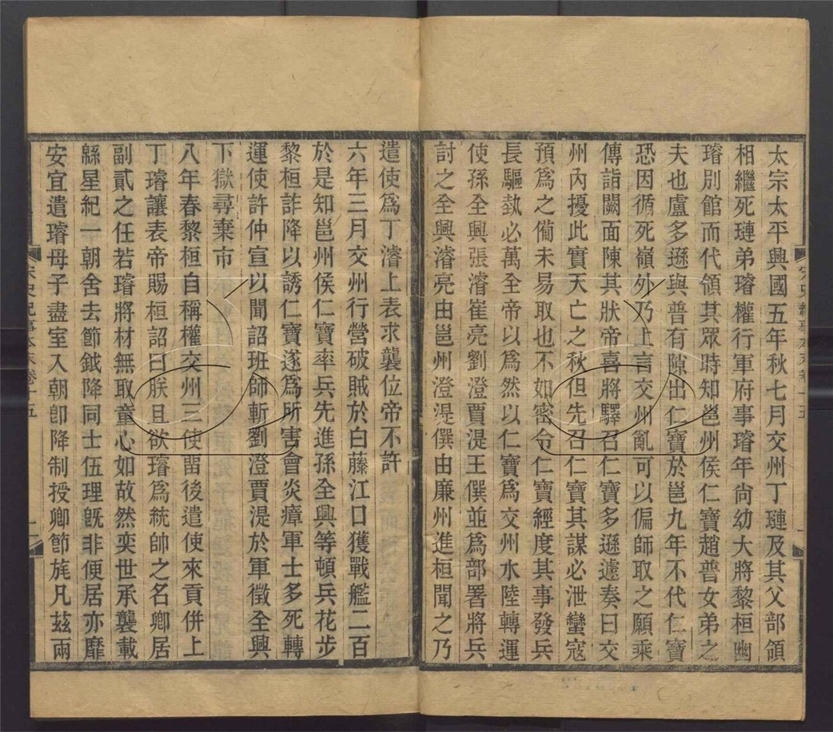 太宗太平興國五年秋七月交州丁璉及其父部領
相繼死璉弟璿權行軍府事璿年尚幼大將黎桓幽
璿別館而代領其眾時知邕州侯仁寶趙普女弟之
夫也盧多遜與普有隙出仁寶於邕九年不代仁寶
恐因循死嶺外乃上言交州亂可以偏師取之願乘
傳詣闕面陳其狀帝喜將驛召仁寶多遜遽奏曰交
州內擾此實天亡之秋但先召仁寶其謀必泄蠻寇
預爲之備未易取也不如密令仁寶經度其事發兵
長驅埶必萬全帝以爲然以仁寶爲交州水陸轉運
使孫全興張濬崔亮劉澄賈湜王僎並爲部署將兵
討之全興濬亮由邕州澄湜僎由廉州進桓聞之乃
宋史紀事本末卷十五
一
遣使爲丁濬上表求襲位帝不許
六年三月交州行營破賊於白藤江口獲戰艦二百
於是知邕州侯仁寶率兵先進孫全興等頓兵花步
黎桓詐降以誘仁寶遂爲所害會炎瘴軍士多死轉
運使許仲宣以聞詔班師斬劉澄賈湜於軍徵全興
下獄尋棄市
八年春黎桓自稱權交州三使畱後遣使來貢併上
丁璿讓表帝賜桓詔曰朕且欲璿爲統帥之名卿居
副貳之任若璿將材無取童心如故然奕世承襲載
緜星紀一朝舍去節鉞降同士伍理旣非便居亦靡
安宜遣璿母子盡室入朝卽降制授卿節旄凡茲兩
宋史紀事本末卷十五